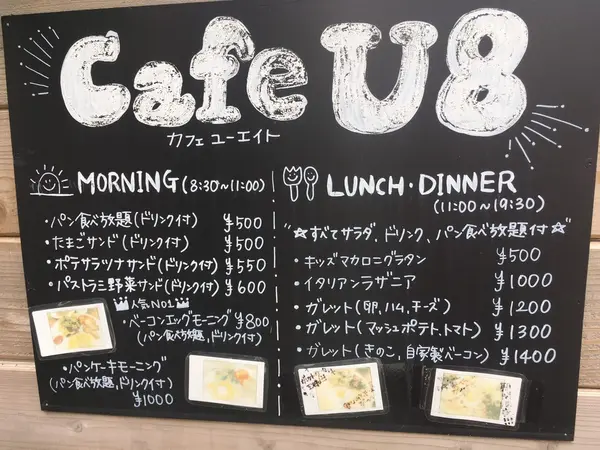 Cafe U8
カフェ ユーエイト
MORNING (8:30〜11:00)
・パン食べ放題(ドリンク付) ¥500
・たまごサンド(ドリンク付) ¥500
・ポテサラツナサンド(ドリンク付) ¥550
・パストラミ野菜サンド(ドリンク付) ¥600
人気NO1
・ベーコンエッグモーニング ¥800
(パン食べ放題、ドリンク付)
・パンケーキモーニング
(パン食べ放題、ドリンク付)
¥1000
LUNCH・DINNER
(11:00〜19:30)
"☆すべてサラダ、ドリンク、パン食べ放題付☆"
・キッズマカロニグラタン ¥500
・イタリアンラザニア ¥1000
・ガレット(卵、ハム、チーズ) ¥1200
・ガレット(マッシュポテト、トマト) ¥1300
・ガレット(きのこ、自家製ベーコン) ¥1400